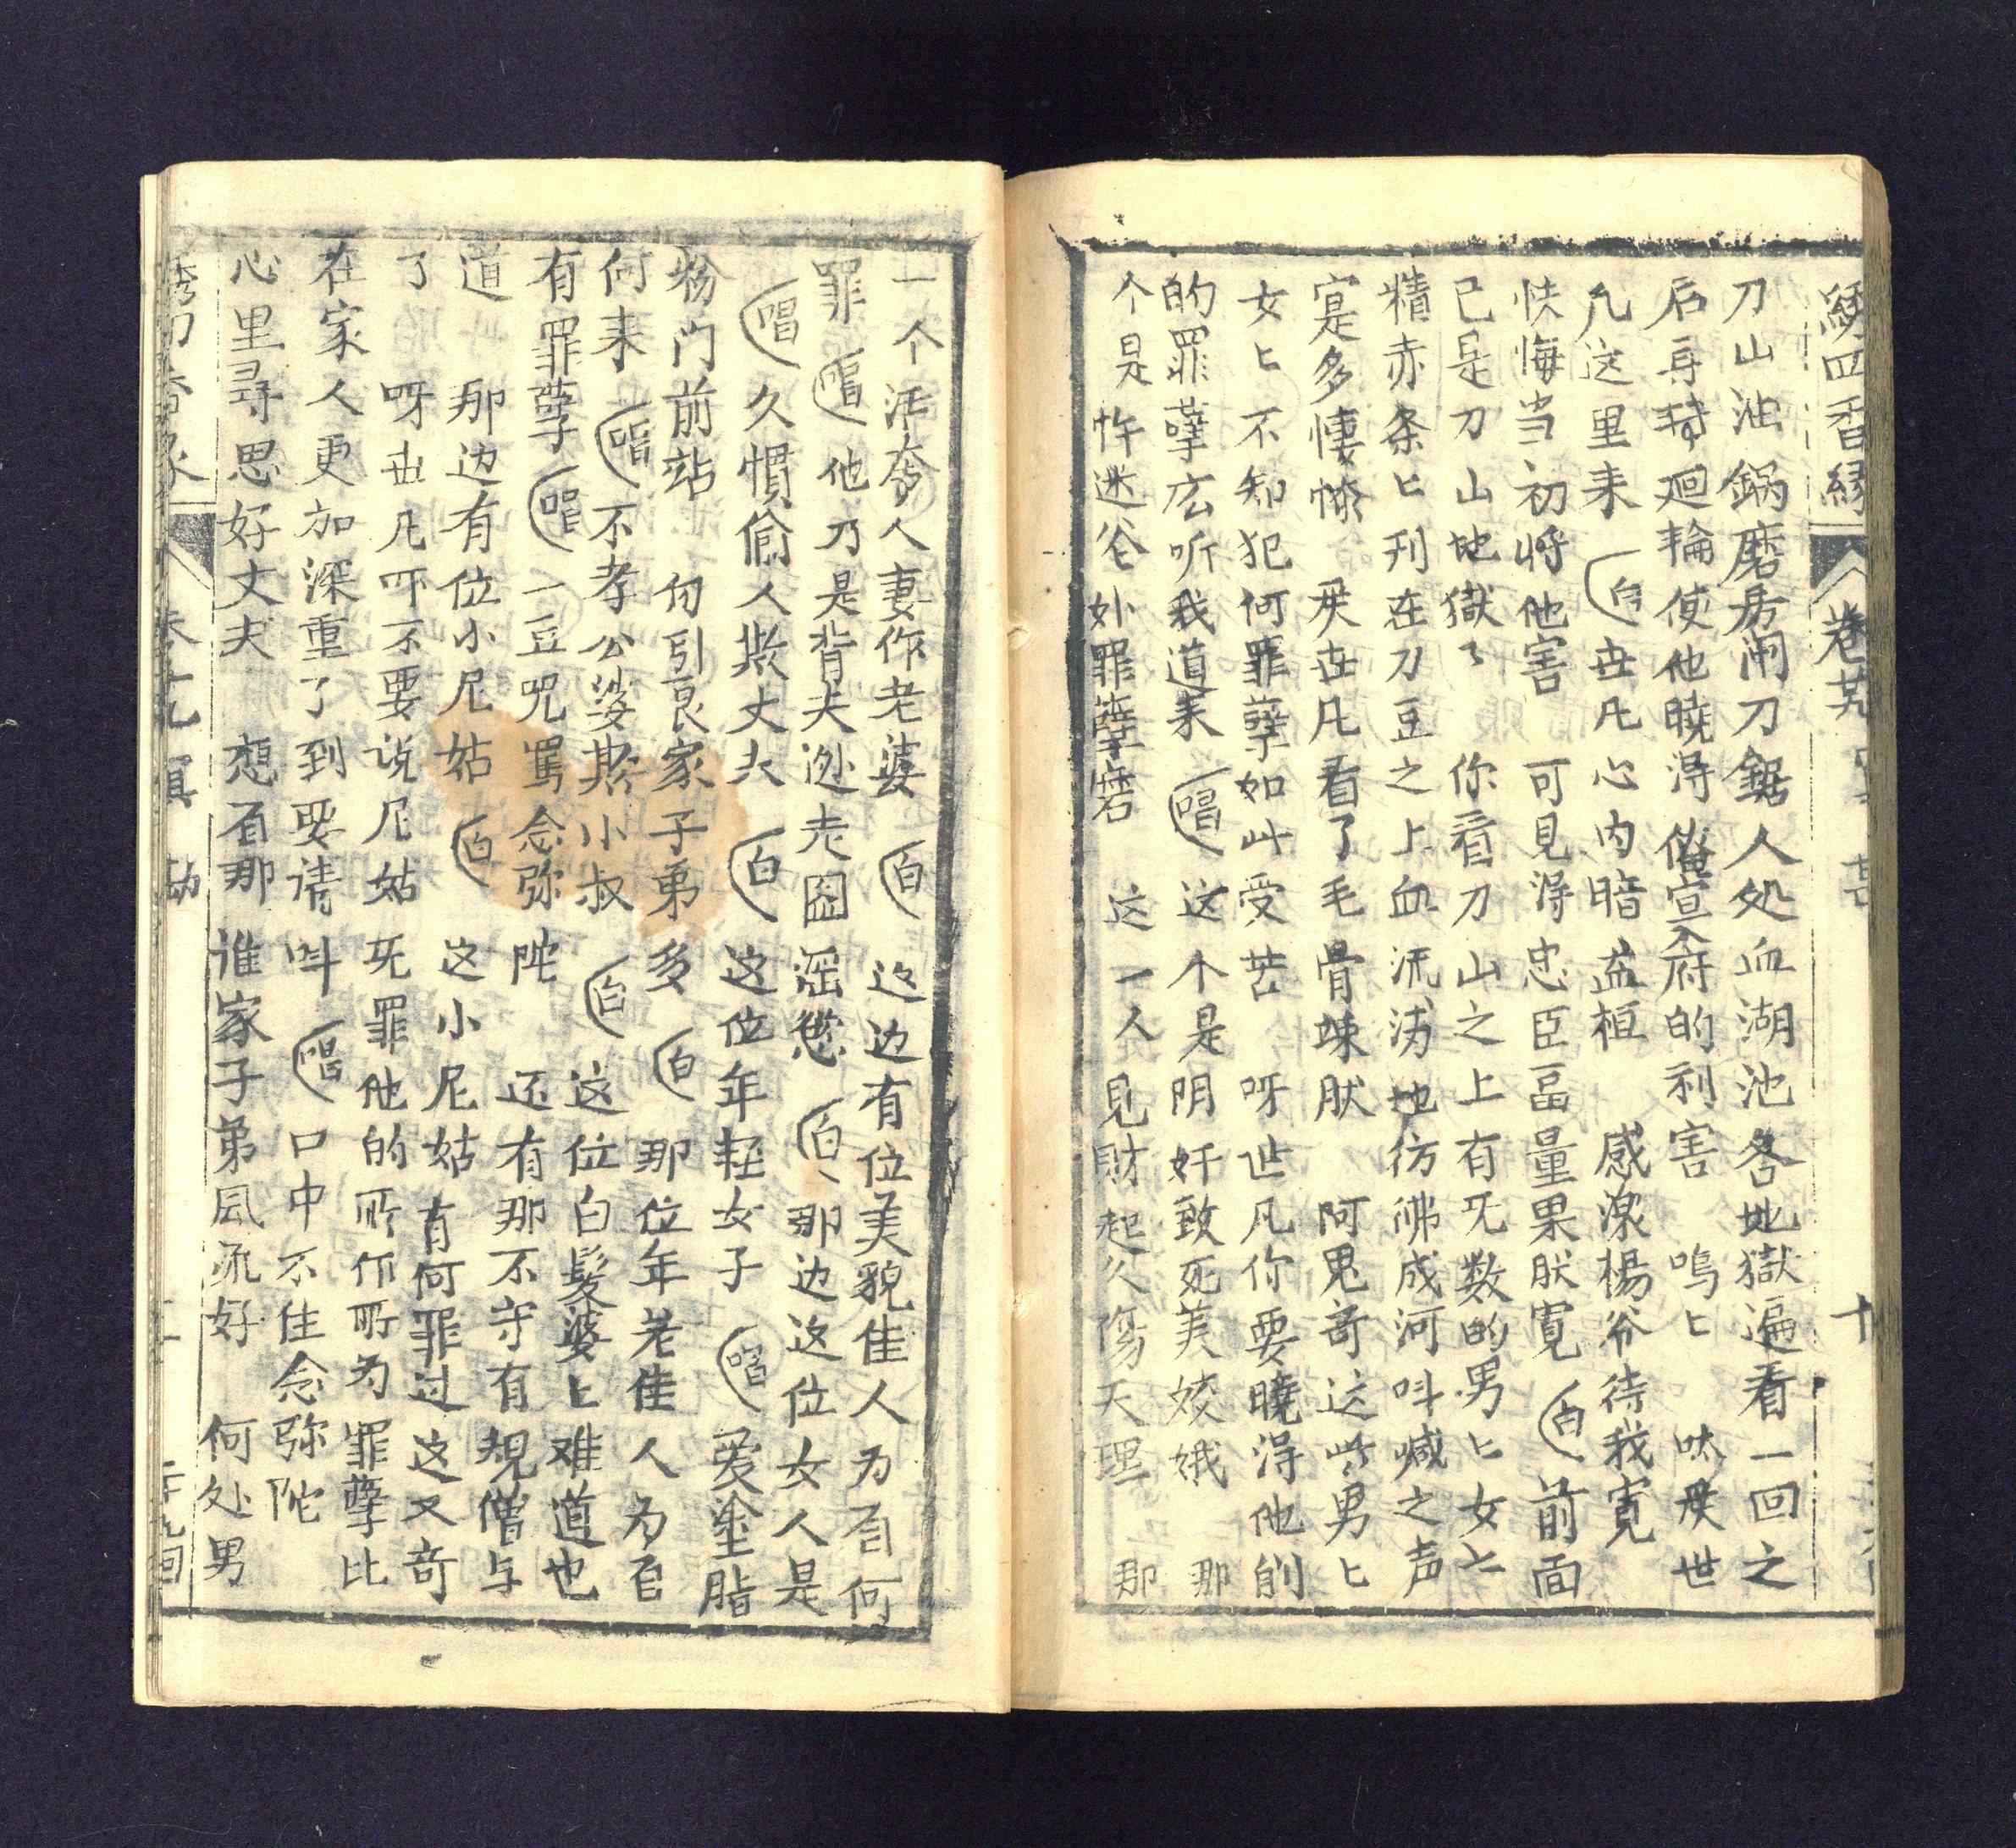 绣四香緣 卷
刀山油鍋磨房闸刀鋸人処血湖池各地獄遍看一回之
后再轉廻輪使他曉淂 府的利害 嗚匕 呔 世
凡这里来 白 世凡心内暗 感激楊爷待我寛
忕悔当初将他害 可見淂忠臣畐量果肰寛 白 前面
已是刀山地獄了 你看刀山之上有旡数的男匕女匕
精赤条匕 在刀豆之上血流 地彷彿成河呌喊之声
寔多悽惨 世凡看了毛骨竦肰 阿鬼竒这些男匕
女匕不知犯何罪孽如此受苦 呀世凡你要曉淂他們
的罪孽広听我道来 唱 这个是阴奸致死美姣娥 那
个是 迷 罪孽 这一人見財起 伤天理 那
一个活 人妻作老婆 白 这边有位美貌佳人为有何
罪 唱 他乃是背夫逃走 淫慾 白 那边这位女人是
唱 久慣偷人欺丈夫 白 这位年軽女子 唱 爱塗脂
粉门前站 勾引良家子弟多 白 那位年老佳人为有
何来 唱 不孝公婆欺小叔 白 这位白髮婆匕难道也
有罪孽 唱 一豆咒罵念弥陀 还有那不守有規僧与
道 那边有位小尼姑 白 这小尼姑有何罪过这又竒
了 呀世凡吓不要说尼姑旡罪他的所作所为罪孽比
在家人更加深重了到要请呌 唱 口中不住念弥陀
心里尋思好丈夫 想有那谁家子弟風流好 何处男